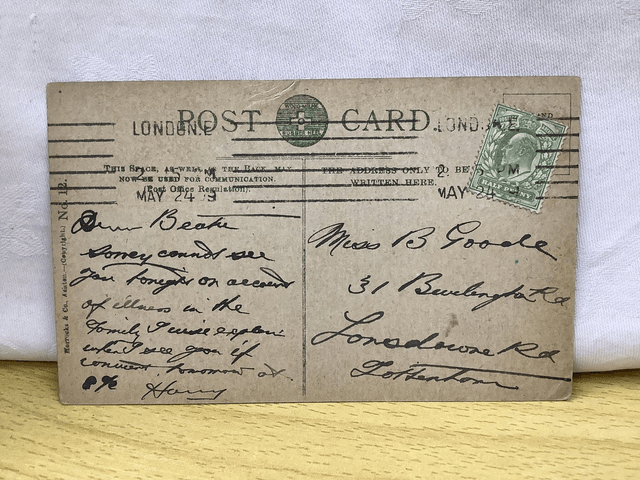 POST CARD
LONDON.E
LOND
THIS SPACE, AS WELL THE BACK, MAY
NOW BE USED FOR COMMUNICATION.
(Post Office Regulation).
MAY 24 9
THE ADDRESS ONLY TO BE
WRITTEN HERE.
2. PM
MAY 24 9
Horrocks & Co., Ashton.—(Copyright.) No. 12.
Dear Beake
Sorrey cannot see
you tonight on account
of illness in the
family I will explain
when I see you if
convient tomorrow at
Harry
Miss B Goode
31 Burlington Rd
Lonsdowne Rd
Tottenham